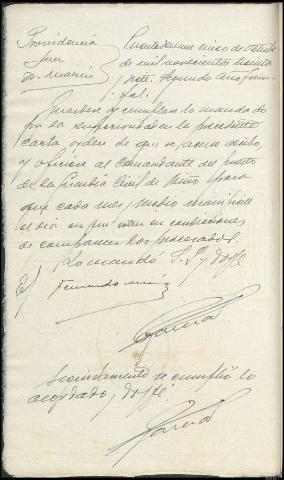 Providencia
Juez
Sr. 
Puentedeume cinco de Octubre
de mil novecientos treinta
y siete. Segundo Año Triun-
fal.
Guárdese y cúmplase lo mandado
por la superioridad en la precedente
carta orden de que se acusa recibo,
y oficiese al Comandante del puesto
de la Guardia Civil de Miño para
que cada mes y medio
si en condiciones
de comparecer los procesados
Lo mandó S. S. y doy fe
E/ Fernando
García
Seguidamente se cumplió lo
acordado, doy fe
García